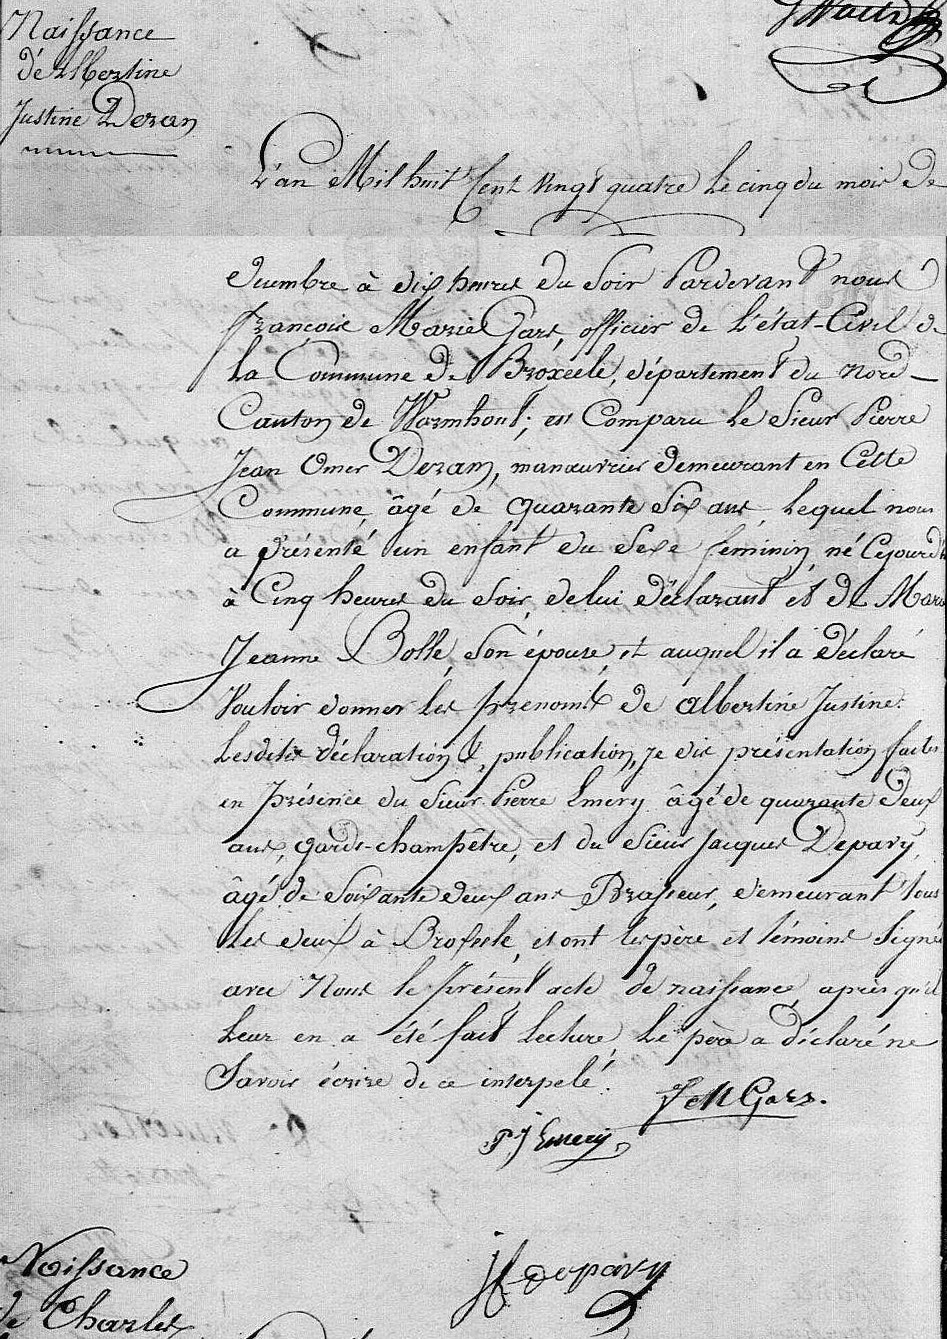 Naissance
d'Albertine
Justine Dezan
L'an Mil huit Cent vingt quatre le cinq du mois de
décembre à dix heures du Soir Pardevant nous
françois Marie Gars, officier de l'état-Civil de
la Commune de Broxeele, département du Nord
Canton de Wormhout; est Comparu le Sieur Pierre
Jean Omer Dezan, manœuvrier demeurant en Cette
Commune, âgé de quarante Six ans, lequel nous
a présenté un enfant du Sexe feminin, né Cejourd'h
à Cinq heures du Soir, de lui Déclarant et de Marie
Jeanne Bolle, Son épouse, et auquel il a déclaré
Vouloir donner les prenoms de albertine Justine.
Lesdites déclaration &, publication, je dis présentation faites
en présence du Sieur Pierre Emery âgé de quarante Deux
ans, garde-champêtre, et du Sieur Jacques Depavy,
âgé de Soixante deux ans Brasseur, demeurant tous
Les deux à Broxeele, et ont les père et témoins Signé
avec Nous le Présent acte de naissance, après qu'il
Leur en a été fait Lecture, Le père a déclaré ne
Savoir écrire de ce interpelé.
f M Gars.
P J Emery
J f depavy
Naissance
de Charles